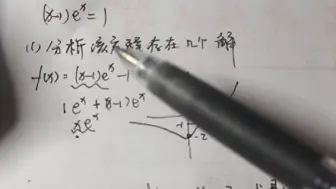 (x-1)eˣ=1
(1) 分析该方程存在几个解
f(x)=(x-1)eˣ-1
1eˣ+(x-1)eˣ
xeˣ
-1
-2